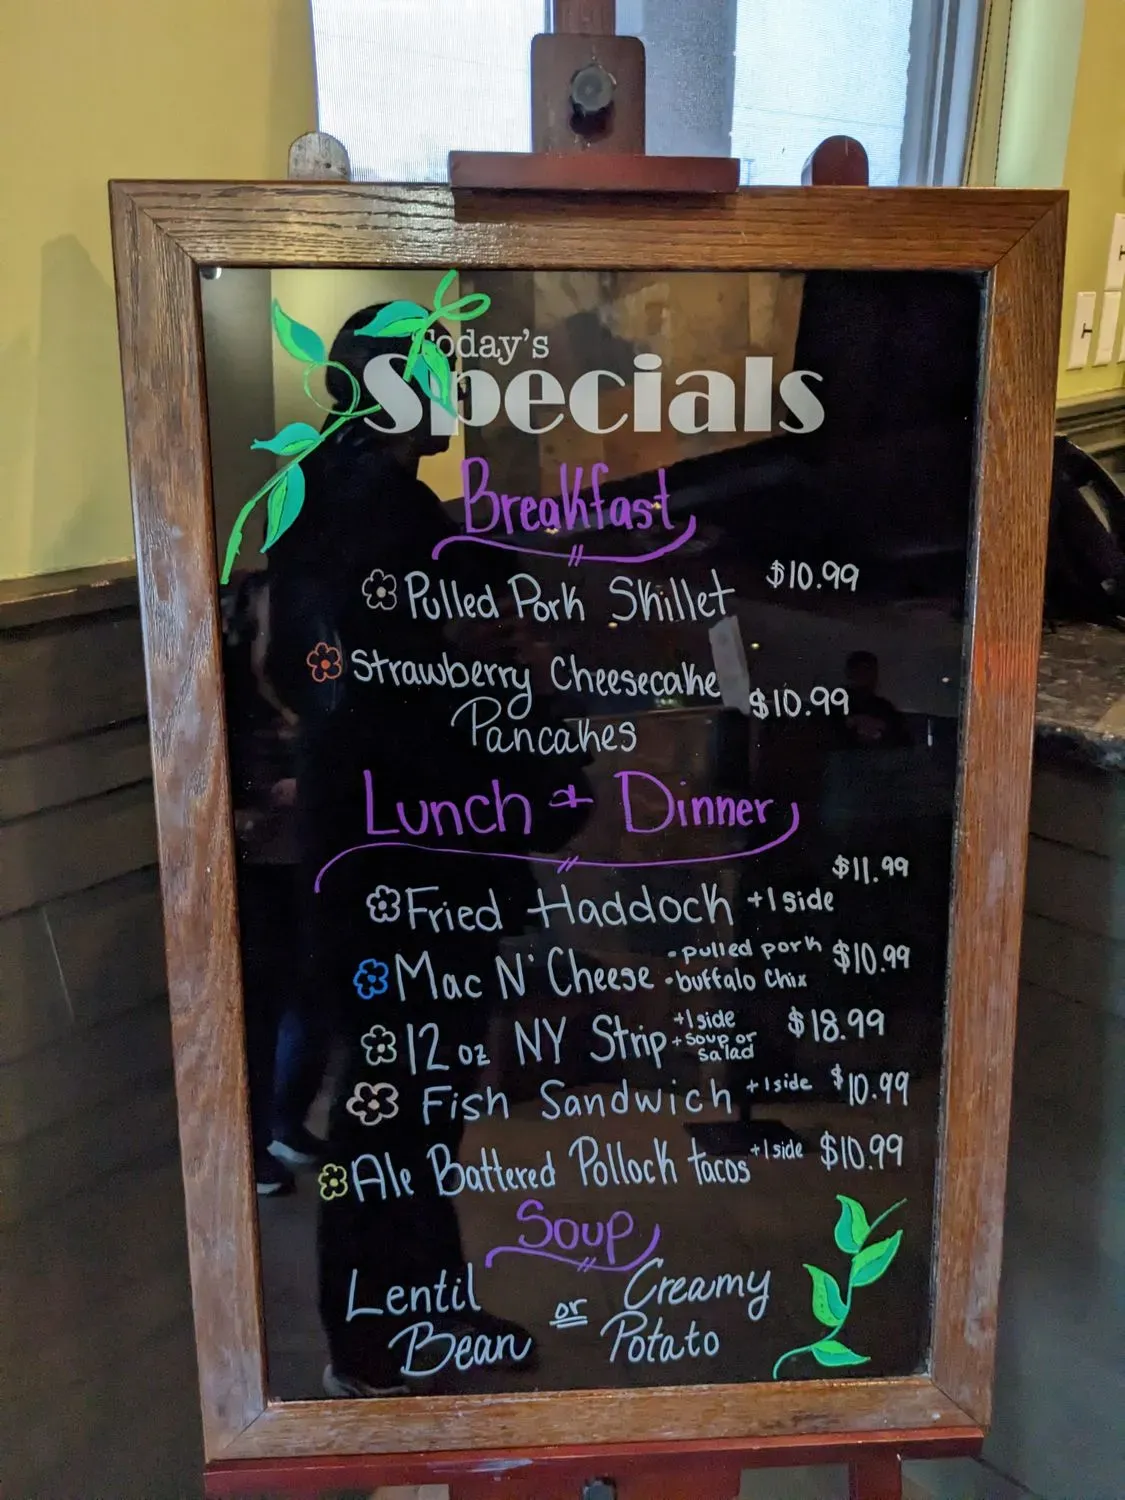 Today's
Specials
Breakfast
Pulled Pork Skillet $10.99
Strawberry Cheesecake
Pancakes $10.99
Lunch & Dinner
Fried Haddock +1 side $11.99
Mac N' Cheese • pulled pork $10.99
• buffalo Chix
12 oz NY Strip +1 side $18.99
+ soup or
salad
Fish Sandwich +1 side $10.99
Ale Battered Pollock tacos +1 side $10.99
Soup
Lentil
Bean or Creamy
Potato